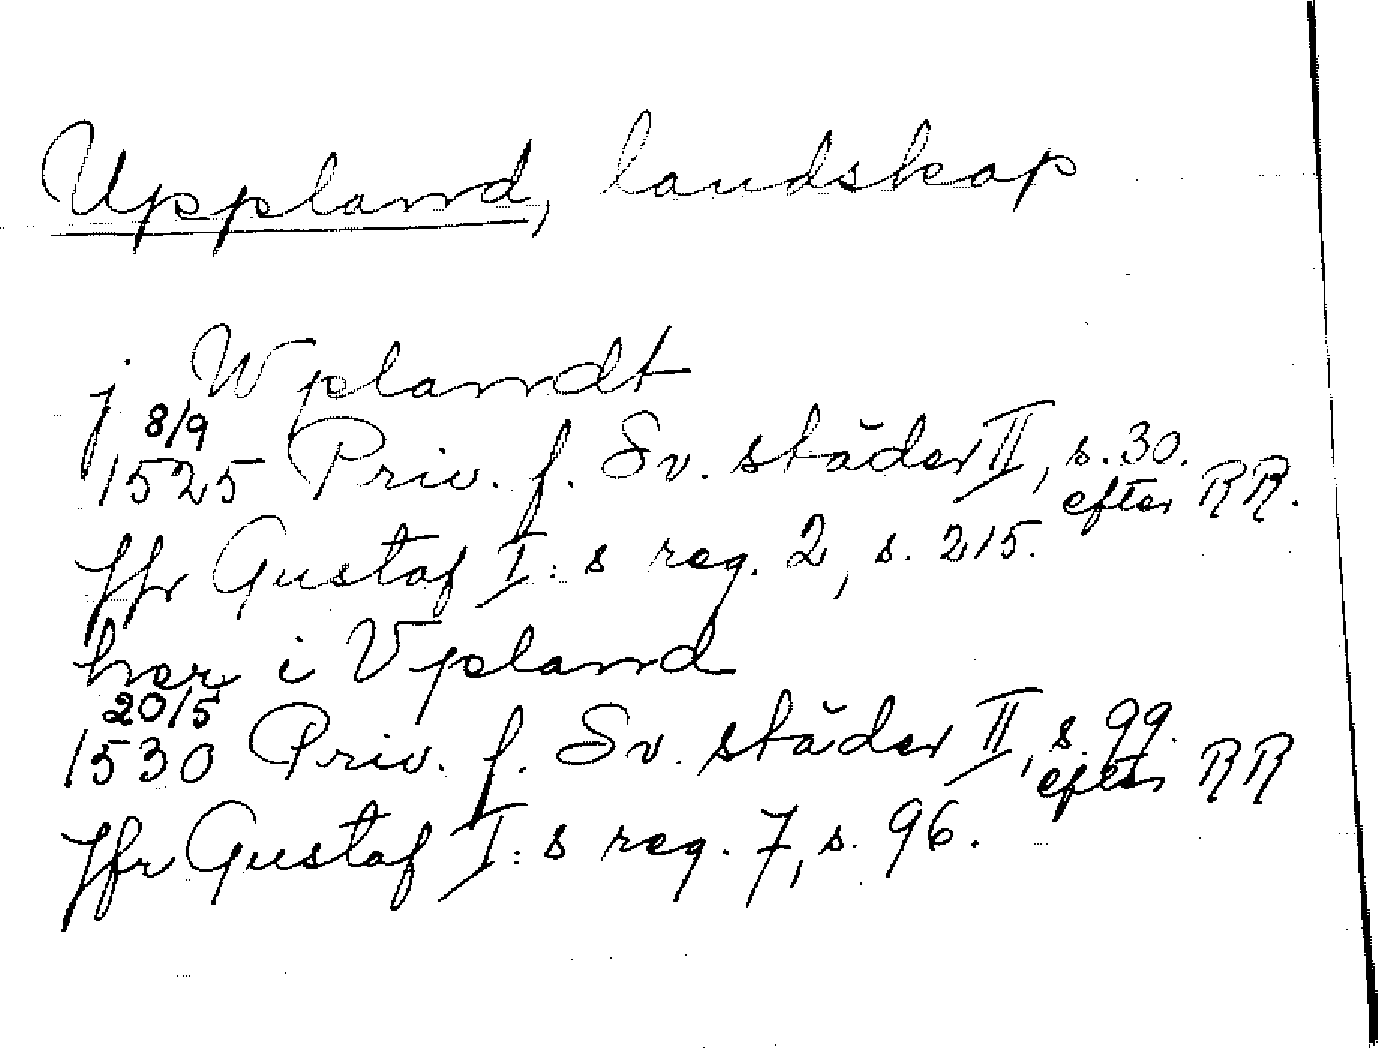 Uppland, landskap
j Wplanndt
8/9
1525 Priv. f. Sv. städer II, s. 30.
efter RR.
Jfr Gustaf I:s reg. 2, s. 215.
här i Vpland
20/5
1530 Priv. f. Sv. städer II, s. 99.
efter RR
Jfr Gustaf I:s reg. 7, s. 96.